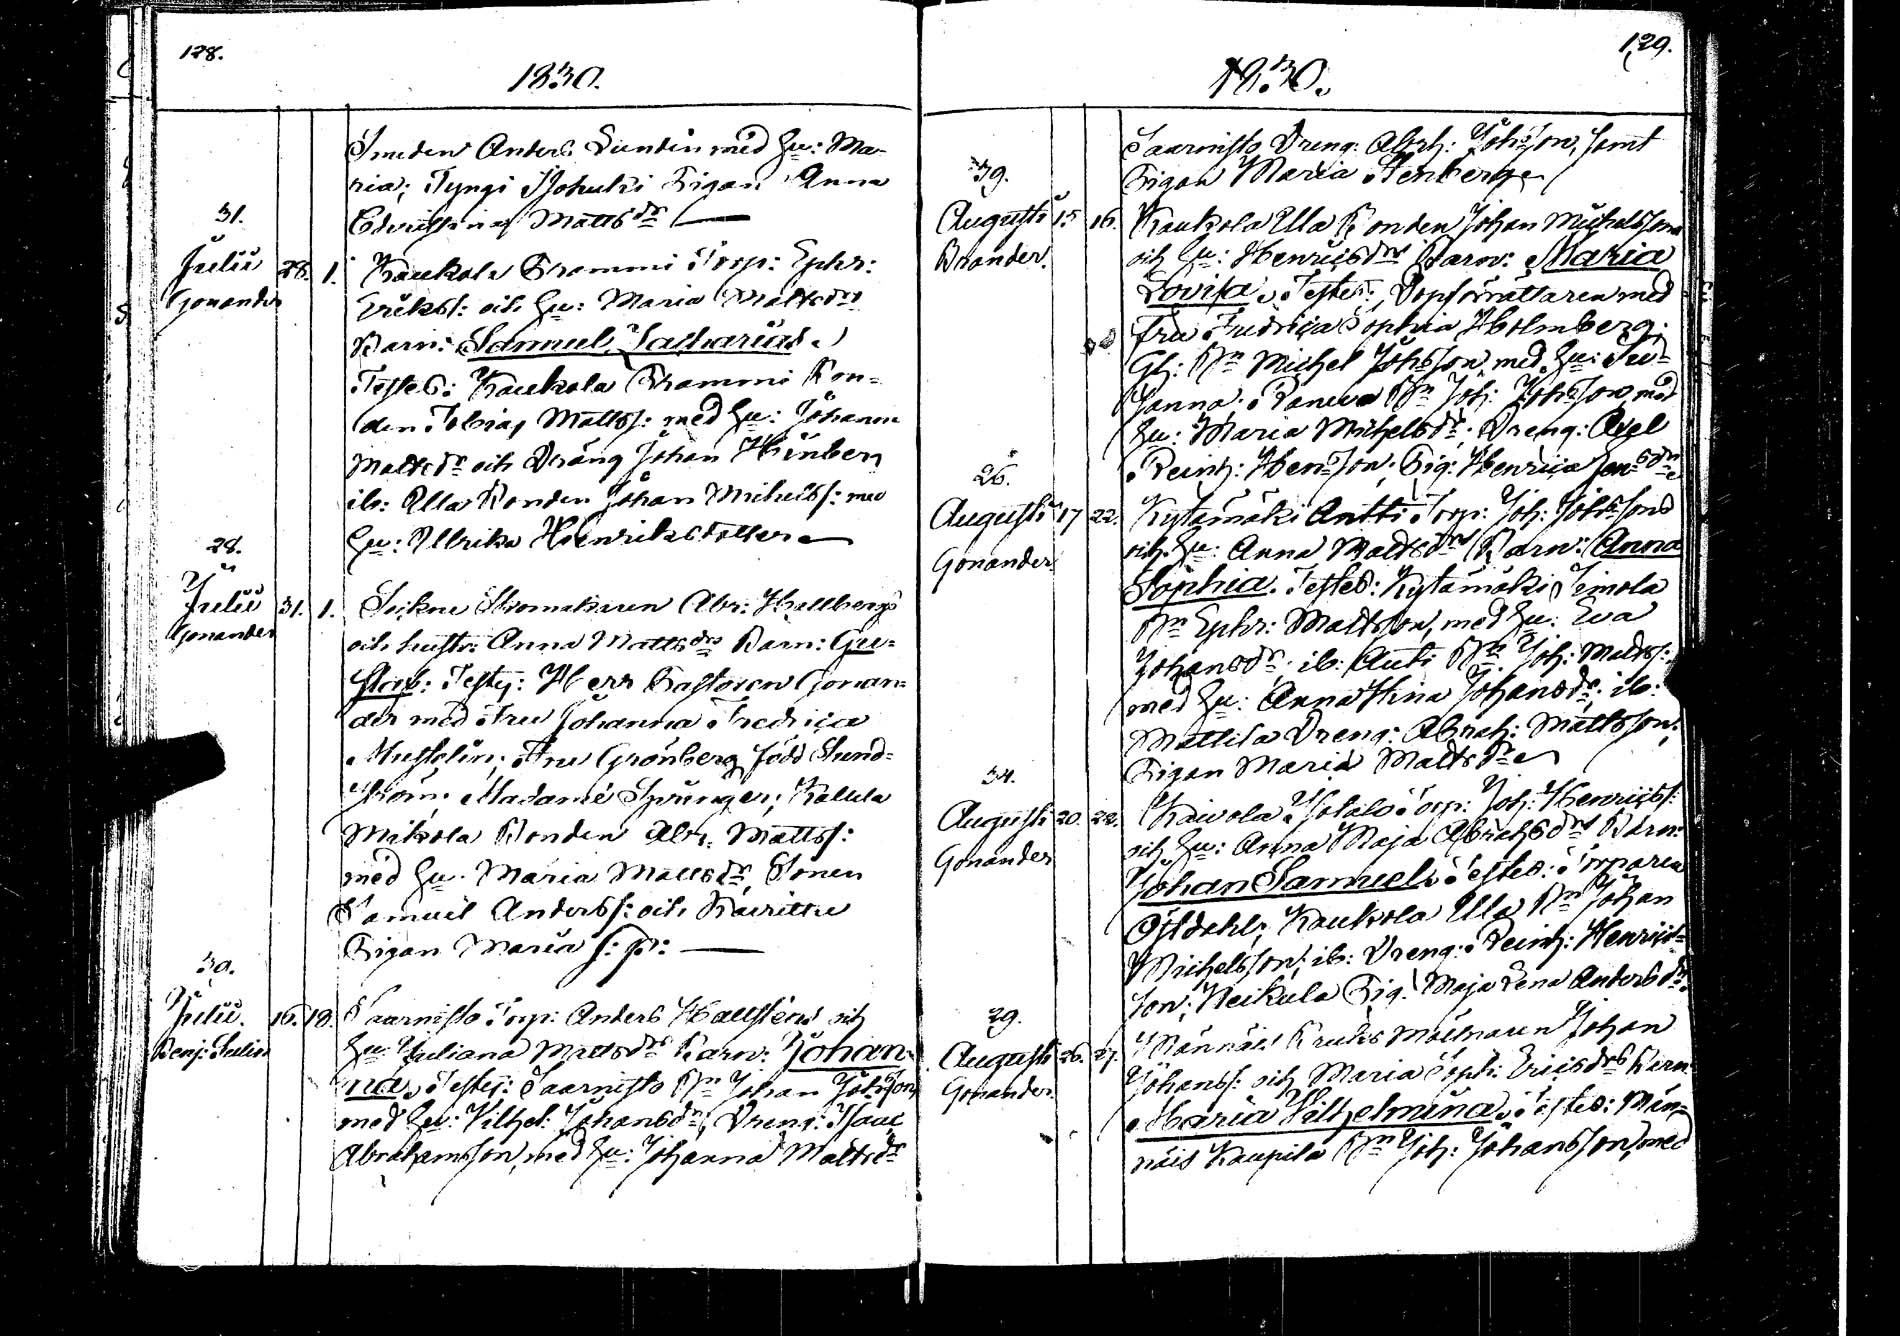 128.
1830.
Smeden Anders Lundin med Hu: Ma-
ria; Tyngi Pigan Anna
Matts dr
31.
Julii 28. 1.
Gonander
Kaukola Prammi Torp: Ephr:
Erikss: och Hu: Maria Mattsdr
Barn: Samuel Zacharias.
Testes: Kaukola Prammi Bon-
den Tobias Matts: med Hu: Johanna
Mattsdr och Dräng Johan
ib: Ulla Bonden Johan Michelss: med
Hu: Ullrika Henriksdotter
28.
Julii 31. 1.
Gonander
Sockne Skomakaren Abr: Hellberg
och hustr: Anna Mattsdr Barn: Gu-
stav: Testes: Herr Pastoren Gonan-
der med Fru Johanna Fredrica
Mustelin; Fru Grönberg född Sund-
ström; Madame Springer; Kallela
Mikola Bonden Abr. Mattss:
med Hu: Maria Mattsdr, Sonen
Samuel Anderss: och
Pigan Maria
30.
Julii. 16. 18.
Benj: Julin
Saarnisto Torp: Anders Hallstén och
Hu: Juliana Mattsdr Barn: Johan-
na. Testes: Saarnisto Bn Johan Johsson,
med Hu: Vilhel: Johansdr; Dreng: Isaac
Abrahamsson, med Hu: Johanna Mattsdr
129.
1830.
Saarnisto Dreng: Abrh: Johsson, samt
Pigan Maria Stenberg
39.
Augusti 15 16.
Brander.
Kaukola Ulla Bonden Johan Michelsson
och Hu: Henricsdr Barn: Maria
Lovisa. Testes: Dopförrättaren med
Fru Fredrica Sophia Holmberg;
Gl: Bn Michel Johsson, med Hu: Su-
sanna; Bn Joh: Johsson, med
Hu: Maria Michelsdr; Dreng: Axel
Reinh: Henrson; Pig: Henrica
26.
Augusti 17 22.
Gonander
Kytämäki Antti Torp: Joh: Johsson
och Hu: Anna Mattsdr Barn: Anna
Sophia. Testes: Kytämäki Simola
Bn Ephr: Mattsson, med Hu: Eva
Johansdr; ib: Anti Bn Joh: Matts:
med Hu: Anna Stina Johansdr; ib:
Mattila Dreng: Abrah: Mattsson;
Pigan Maria Mattsdr
34.
Augusti 20. 22.
Gonander
Kaivola Torp: Joh: Henricss:
och Hu: Anna Maja Abrahsdr Barn:
Johan Samuel. Testes: Torparen
Östdahl; Kaukola Ulla Bn Johan
Michelsson; ib: Dreng: Reinh: Henrics-
son; Heikula Pig: Maja Lena Andersdr.
29.
Augusti 26. 27.
Gonander.
Männäis Bruks Mölnaren Johan
Johanss: och Maria Soph: Ericsdr Barn:
Maria Vilhelmina. Testes: Män-
näis Kaupila Bn Joh: Johansson, med